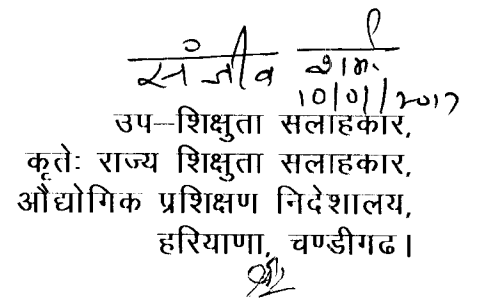 संजीव शर्मा
10/01/2017
उप–शिक्षुता सलाहकार,
कृतेः राज्य शिक्षुता सलाहकार,
औद्योगिक प्रशिक्षण निदेशालय,
हरियाणा, चण्डीगढ।